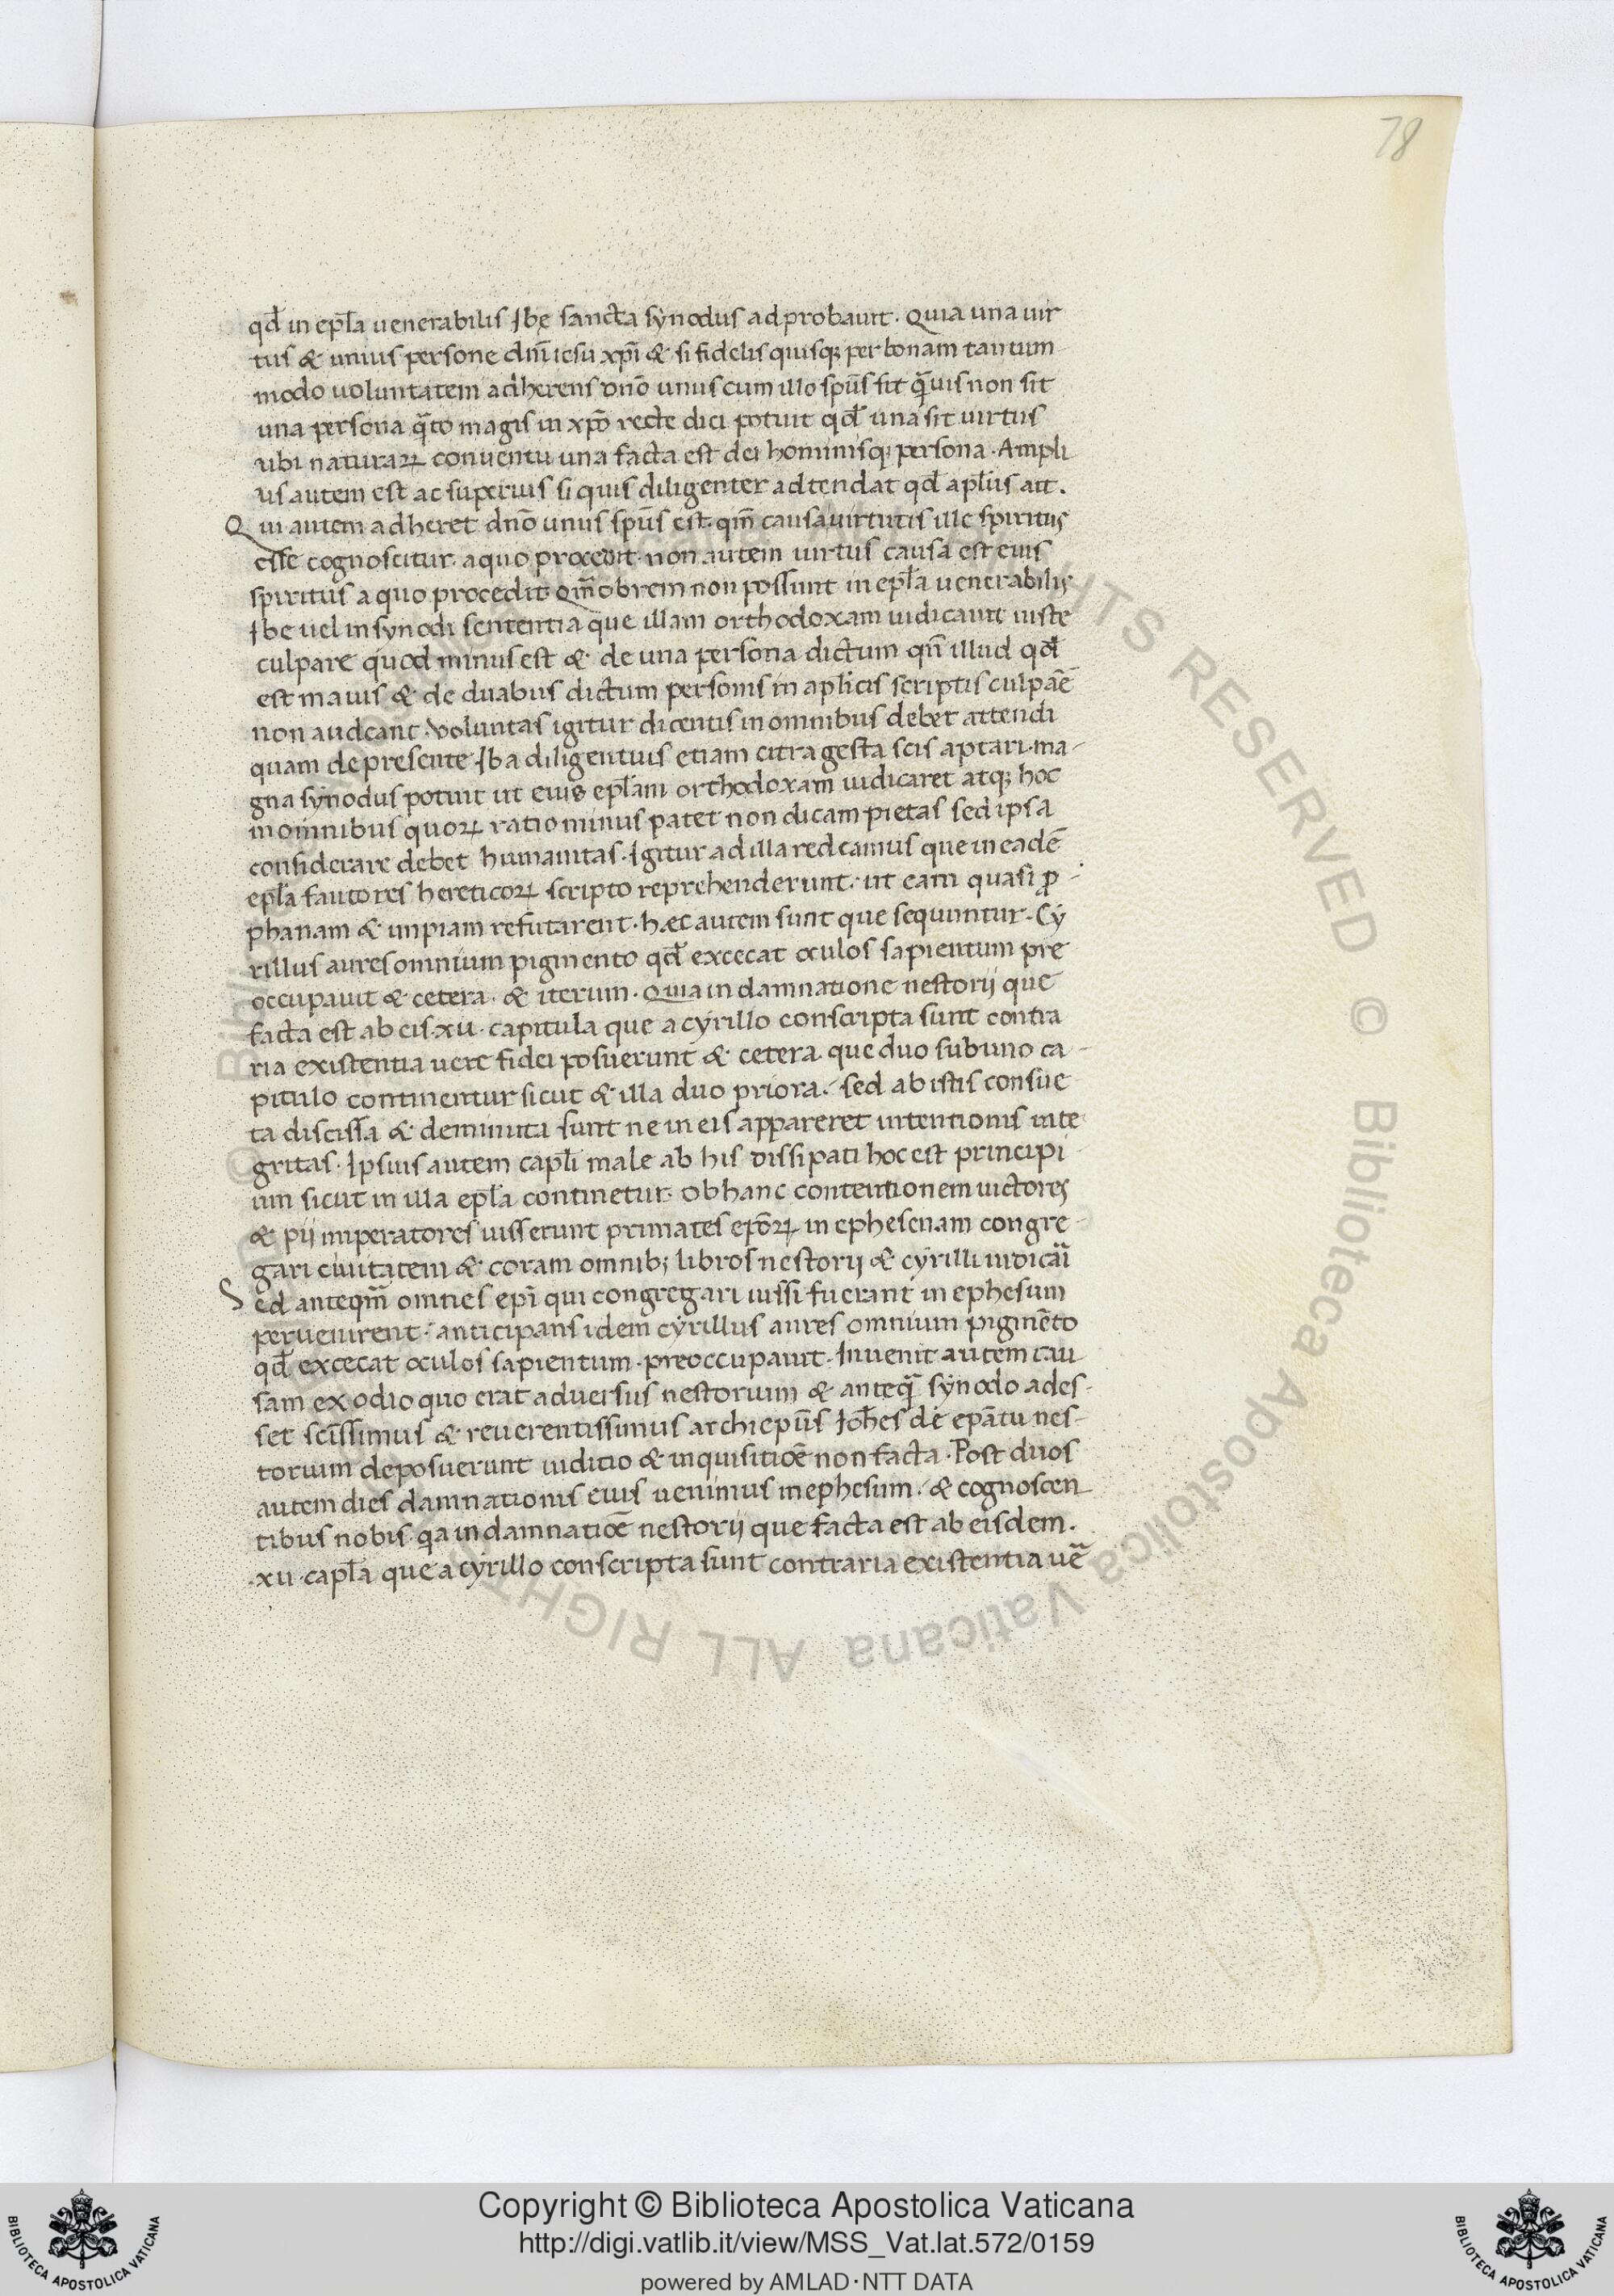 78
qd̄ in ep̄la uenerabilis Ibę sancta synodus adprobauit. Quia una uir
tus & unius persone dn̄i iesu xp̄i & si fidelis quisq; per bonam tantum
modo uoluntatem adherens dn̄o unus cum illo sp̄us sit q̄uis non sit
una persona q̄to magis in xp̄o recte dici potuit qd̄ una sit uirtus
ubi naturaꝝ conuentu una facta est dei hominisq; persona. Ampli
us autem est ac superius si quis diligenter adtendat qd̄ apl̄us ait.
Qui autem adheret dn̄o unus sp̄us est. qm̄ causa uirtutis ille spiritus
esse cognoscitur. a quo procedit. non autem uirtus causa est eius
spiritus a quo procedit. Qm̄obrem non possunt in ep̄la uenerabilis
Ibe uel in synodi sententia que illam orthodoxam iudicauit iuste
culpare quod minus est & de una persona dictum qn̄ illud qd̄
est maius & de duabus dictum personis in aplicis scriptis culpāe
non audeant. Voluntas igitur dicentis in omnibus debet attendi
quam de presente Iba diligentius etiam citra gesta scis aptari. ma-
gna synodus potuit ut eius ep̄lam orthodoxam iudicaret atq; hoc
in omnibus quoꝝ ratio minus patet non dicam pietas sed ipsa
considerare debet humanitas. Igitur ad illa redeamus que in eadē
ep̄la fautores hereticoꝝ scripto reprehenderunt. ut eam quasi ꝓ-
phanam & impiam refutarent. hæc autem sunt que sequuntur. Cy
rillus aures omnium pigmento qd̄ excecat oculos sapientum pre
occupauit & cetera. & iterum. Quia in damnatione nestorij que
facta est ab eis. xii. capitula que a cyrillo conscripta sunt contra
ria existentia uere fidei posuerunt & cetera. que duo sub uno ca-
pitulo continentur sicut & illa duo priora. sed ab istis consue
ta discissa & deminuta sunt ne in eis appareret intentionis inte
gritas. Ipsius autem capl̄i male ab his dissipati hoc est principi
um sicut in illa ep̄la continetur. Ob hanc contentionem uictores
& pij imperatores iusserunt primates ep̄oꝝ in ephesenam congre-
gari ciuitatem & coram omnib; libros nestorij & cyrilli iudicari
Sed anteqm̄ omnes ep̄i qui congregari iussi fuerant in ephesum
peruenirent. anticipans idem cyrillus aures omnium pigmēto
qd̄ excecat oculos sapientum. preoccupauit. Inuenit autem cau
sam ex odio quo erat aduersus nestorium & anteq̄ synodo ades-
set scīssimus & reuerentissimus archiep̄us Ioh̄es de ep̄atu nes-
torium deposuerunt iuditio & inquisitiōe non facta. Post duos
autem dies damnationis eius uenimus in ephesum. & cognoscen
tibus nobis. qa in damnatiōe nestorij que facta est ab eisdem.
.xii. capl̄a que a cyrillo conscripta sunt contraria existentia uē
Copyright © Biblioteca Apostolica Vaticana
http://digi.vatlib.it/view/MSS_Vat.lat.572/0159
powered by AMLAD·NTT DATA